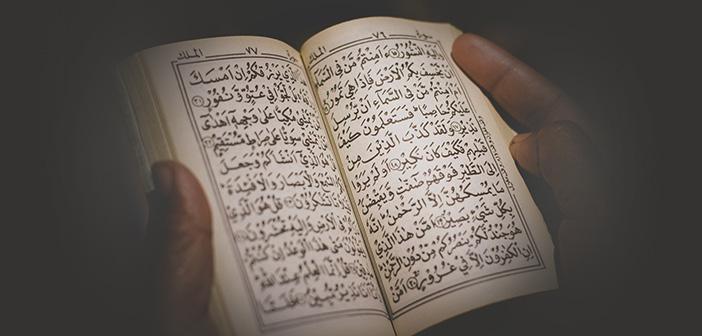 سورة ٧٦ الملك
وَاِلَيْهِ النُّشُوْرُ ءَاَمِنْتُمْ مَّنْ فِي السَّمَآءِ
اَنْ يَّخْسِفَ بِكُمُ الْاَرْضَ فَاِذَا هِيَ تَمُوْرُ
اَمْ اَمِنْتُمْ مَّنْ فِي السَّمَآءِ اَنْ يُّرْسِلَ
عَلَيْكُمْ حَاصِبًا فَسَتَعْلَمُوْنَ كَيْفَ
نَذِيْرِ وَلَقَدْ كَذَّبَ الَّذِيْنَ مِنْ
قَبْلِهِمْ فَكَيْفَ كَانَ نَكِيْرِ اَوَلَمْ يَرَوْا
اِلَى الطَّيْرِ فَوْقَهُمْ صٰٓفّٰتٍ وَّيَقْبِضْنَ
مَا يُمْسِكُهُنَّ اِلَّا الرَّحْمٰنُ اِنَّهٗ
بِكُلِّ شَيْءٍ بَصِيْرٌ اَمَّنْ هٰذَا الَّذِيْ
هُوَ جُنْدٌ لَّكُمْ يَنْصُرُكُمْ مِّنْ دُوْنِ الرَّحْمٰنِ
اِنِ الْكٰفِرُوْنَ اِلَّا فِيْ غُرُوْرٍ اَمَّنْ
٧٧ الملك
الَّذِيْ يَرْزُقُكُمْ اِنْ اَمْسَكَ
بَلْ لَّجُّوْا فِيْ عُتُوٍّ وَّنُفُوْرٍ
يَّمْشِيْ مُكِبًّا عَلٰى وَجْهِهٖٓ اَهْدٰٓى
يَّمْشِيْ سَوِيًّا عَلٰى صِرَاطٍ مُّسْتَقِيْمٍ
هُوَ الَّذِيْٓ اَنْشَاَكُمْ وَجَعَلَ
السَّمْعَ وَالْاَبْصَارَ وَالْاَفْئِدَةَ
مَّا تَشْكُرُوْنَ قُلْ هُوَ الَّذِيْ
فِي الْاَرْضِ وَاِلَيْهِ تُحْشَرُوْنَ
مَتٰى هٰذَا الْوَعْدُ اِنْ كُنْتُمْ
قُلْ اِنَّمَا الْعِلْمُ عِنْدَ اللّٰهِ
اَنَا نَذِيْرٌ مُّبِيْنٌ فَلَمَّا